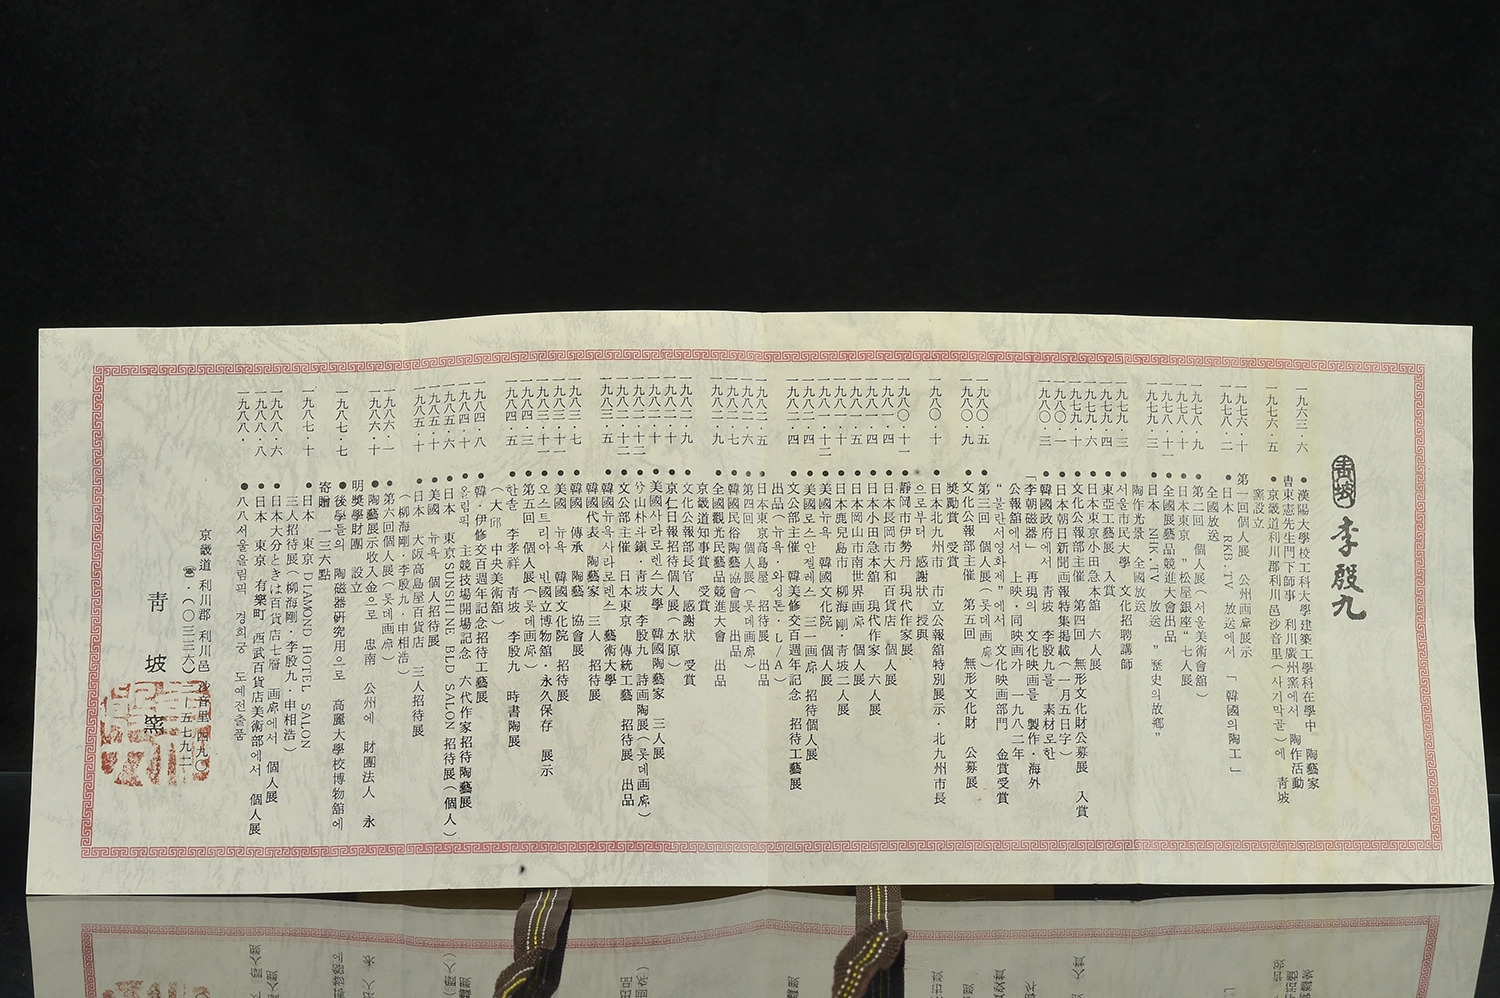 青坡 李殷九
一九六三·六 ●漢陽大學校工科大學建築工學科在學中 陶藝家
靑東憲先生門下師事 利川廣州窯에서 陶作活動
一九七六·五 ●京畿道利川郡利川邑沙音里(사기막골)에 靑坡
窯設立
一九七六·十 第一回個人展 公州画廊展示
一九七八·二 ●日本 RKB.TV 放送에서 「韓國의陶工」
全國放送
一九七八·九 ●第二回 個人展(서울美術會舘)
一九七八·十 ●日本東京 "松屋銀座"七人展
一九七八·十一 ●全國展藝品競進大會出品
一九七九·三 ●日本 NHK.TV 放送 "歷史의故鄕"
陶作光景 全國放送
一九七九·三 ●서울市民大學 文化招聘講師
一九七九·四 ●東亞工藝展 入賞
一九七九·六 ●日本東京小田急本舘 六人展
一九七九·十 ●文化公報部主催 第四回 無形文化財公募展 入賞
一九八〇·一 ●日本朝日新聞画報特集揭載(一月五日字)
一九八〇·三 ●韓國政府에서 靑坡 李殷九를 素材로한
「李朝磁器」 再現의 文化映画를 製作·海外
公報舘에서 上映·同映画가 一九八二年
"불란서영화제"에서 文化映画部門 金賞受賞
一九八〇·五 ●第三回 個人展(롯데画廊)
一九八〇·九 ●文化公報部主催 第五回 無形文化財 公募展
奬勵賞 受賞
一九八〇·十 ●日本北九州市 市立公報舘特別展示·北九州市長
으로부터 感謝狀 授與
一九八〇·十一 ●靜岡市伊勢丹 現代作家展
一九八一·四 ●日本長岡市大和百貨店 個人展
一九八一·四 ●日本小田急本舘 現代作家 六人展
一九八一·五 ●日本岡山市南世界画廊 個人展
一九八一·十一 ●日本鹿兒島市 柳海剛·靑坡二人展
一九八一·十二 ●美國뉴욕 韓國文化院 個人展
一九八二·四 ●美國로스안젤레스 三一画廊 招待個人展
一九八二·四 ●文公部主催 韓美修交百週年記念 招待工藝展
出品(뉴욕·와싱톤·L/A)
一九八二·五 ●日本東京高島屋 招待展 出品
一九八二·六 ●第四回 個人展(롯데画廊)
一九八二·七 ●韓國民俗陶藝協會展 出品
一九八二·九 ●全國觀光民藝品競進大會 出品
京畿道知事賞 受賞
一九八二·九 ●文化公報部長官 感謝狀 受賞
一九八二·十 ●京仁日報招待個人展(水原)
一九八二·十一 ●美國사라로렌스大學 韓國陶藝家 三人展
一九八二·十二 ●分山朴斗鎭·靑坡 李殷九 詩画陶展(롯데画廊)
一九八二·十二 ●文公部主催 日本東京 傳統工藝 招待展 出品
一九八三·五 ●韓國뉴욕사라로렌스 藝術大學
韓國代表 陶藝家 三人 招待展
一九八三·七 ●韓國 傳承 陶藝 協會展
一九八三·十 ●美國 뉴욕 韓國文化院 招待展
一九八三·十一 ●오스트리아 빈國立博物舘·永久保存 展示
一九八四·三 ●第五回 個人展(롯데画廊)
一九八四·五 ●한솔 李孝祥 靑坡 李殷九 時書陶展
(大邱 中央美術舘)
一九八四·八 ●韓·伊修交百週年記念招待工藝展
一九八四·十 ●올림픽 主競技場開場記念 六代作家招待陶藝展
一九八五·六 ●日本 東京SUNSHINE BLD SALON 招待展(個人)
一九八五·十 ●美國 뉴욕 個人招待展
一九八五·十 ●日本 大阪高島屋百貨店 三人招待展
(柳海剛·李殷九·申相浩)
一九八六·一 ●第六回個人展(롯데画廊)
一九八六·十 ●陶藝展示收入金으로 忠南 公州에 財團法人 永
明奬學財團 設立
一九八七·七 ●後學들의 陶磁器硏究用으로 高麗大學校博物舘에
寄贈 一三六點
一九八七·十 ●日本 東京 DIAMOND HOTEL SALON
三人招待展(柳海剛·李殷九·申相浩)
一九八八·六 ●日本大分ときは百貨店七層 画廊에서 個人展
一九八八·八 ●日本 東京 有樂町 西武百貨店美術部에서 個人展
一九八八· ●八八서울올림픽 경희궁 도예전출품
京畿道 利川郡 利川邑 沙音里四九〇
☎·(〇三三六)二一五七九二
靑坡窯